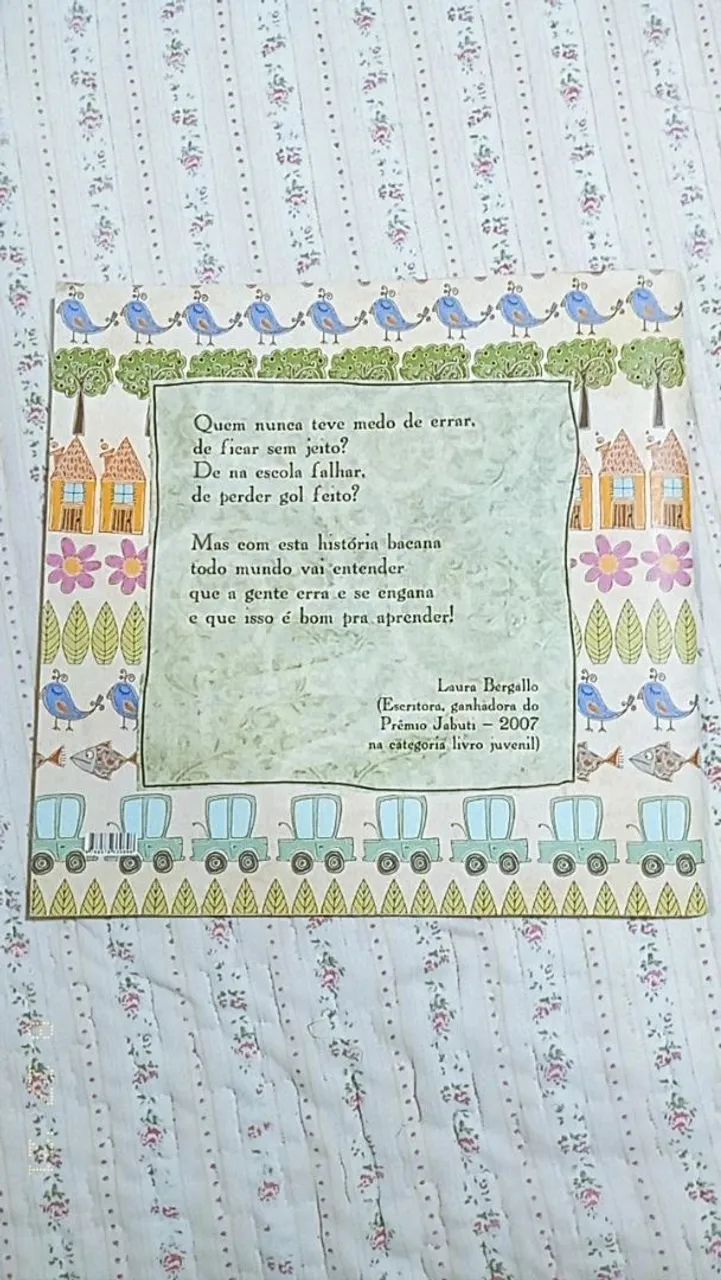 Quem nunca teve medo de errar,
de ficar sem jeito?
De na escola falhar,
de perder gol feito?
Mas com esta história bacana
todo mundo vai entender
que a gente erra e se engana
e que isso é bom pra aprender!
Laura Bergallo
(Escritora, ganhadora do
Prêmio Jabuti – 2007
na categoria livro juvenil)